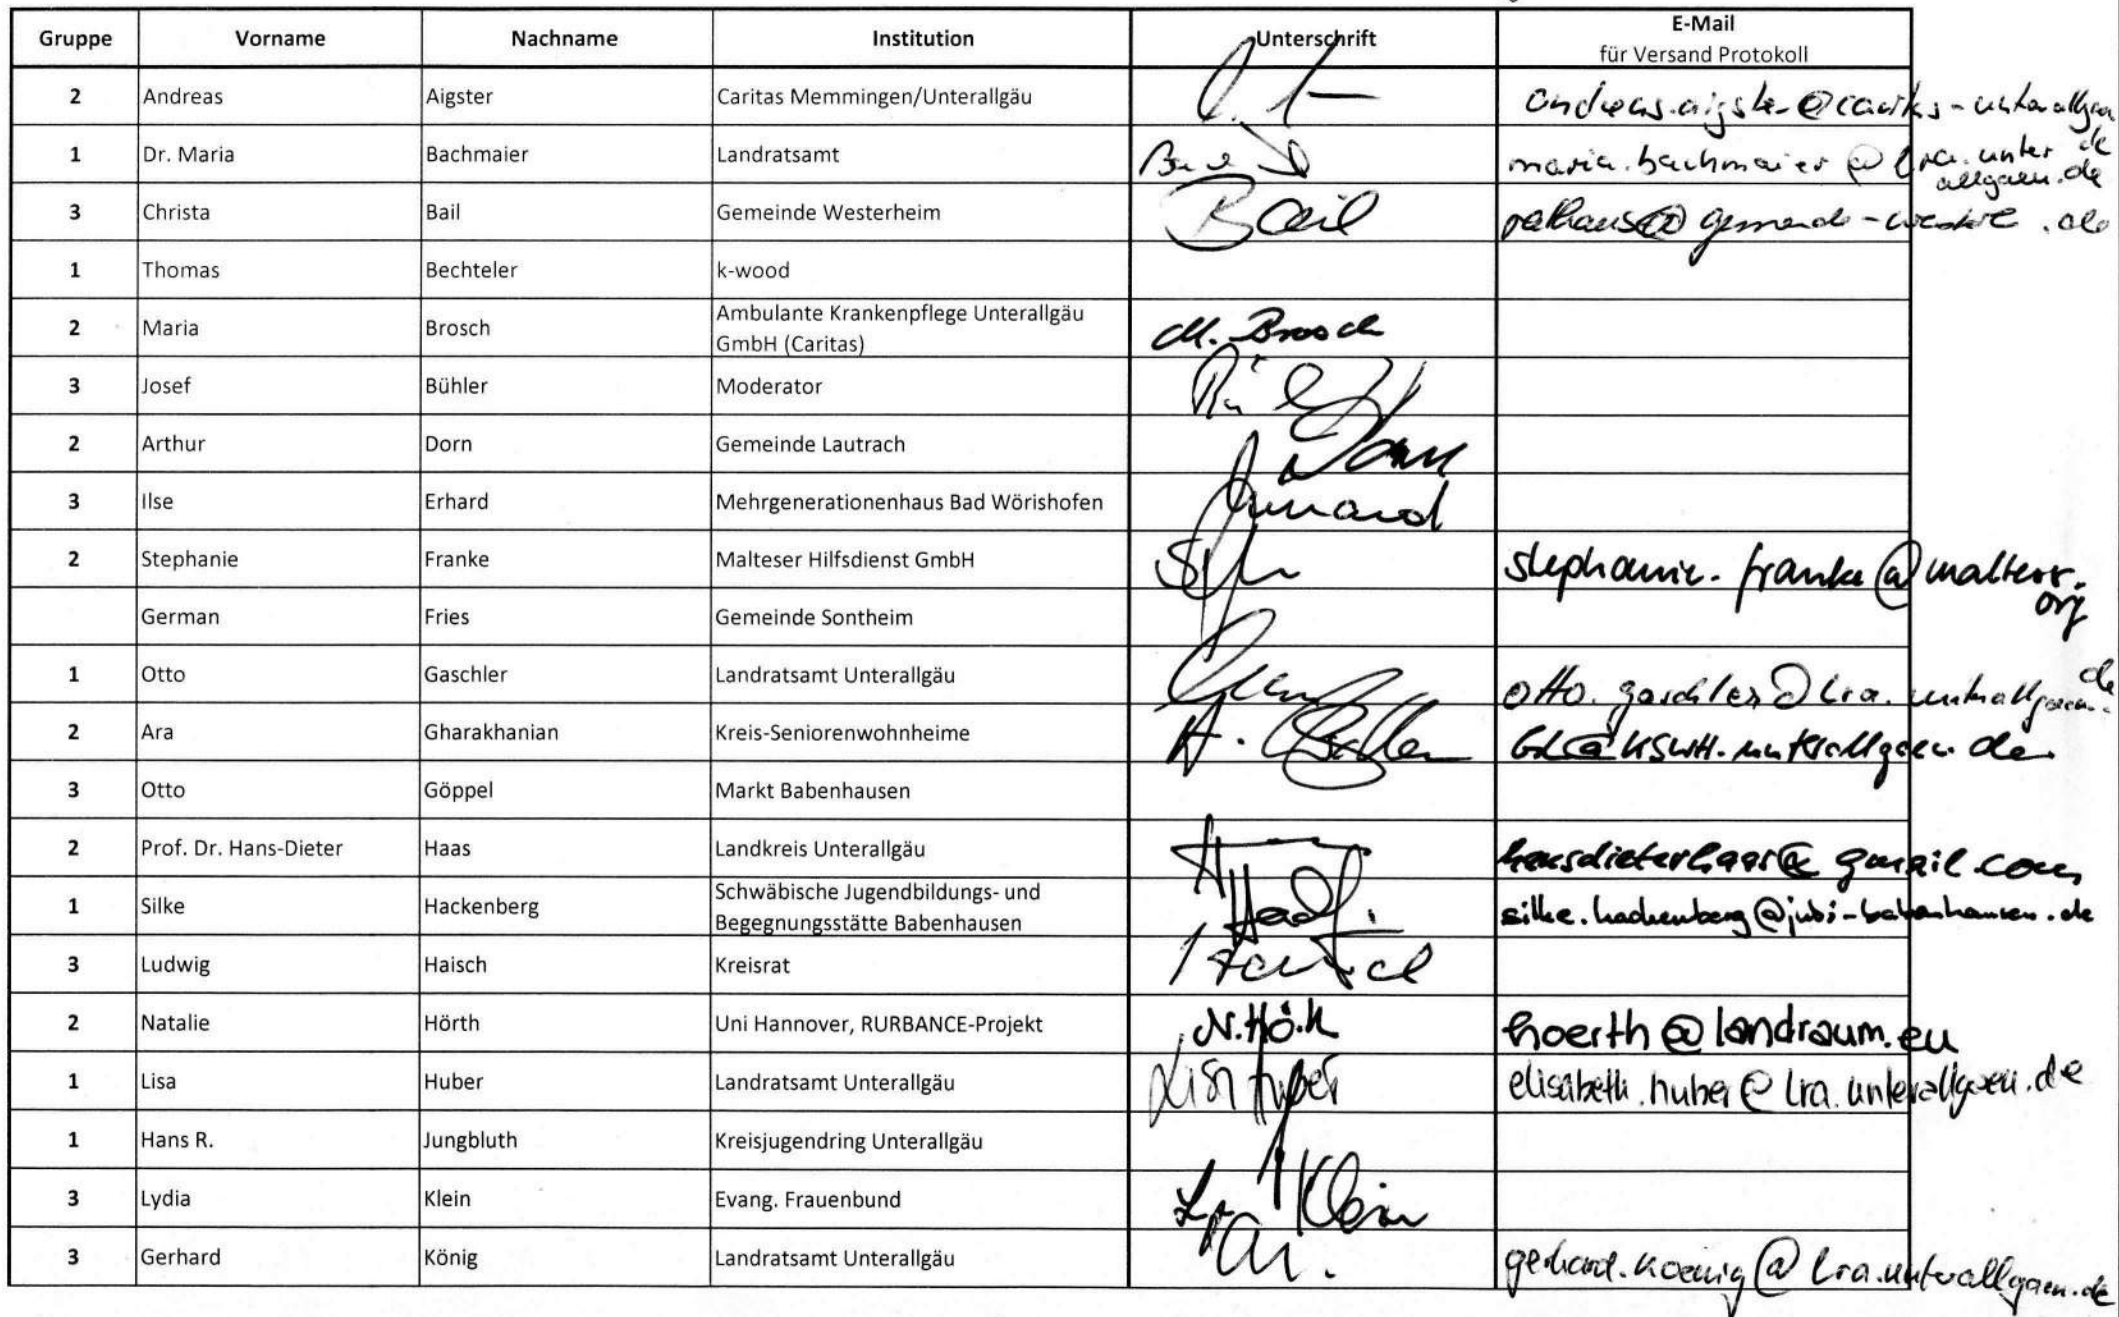 Gruppe Vorname Nachname Institution Unterschrift E-Mail
für Versand Protokoll
2 Andreas Aigster Caritas Memmingen/Unterallgäu andreas.aigster@caritas-unterallgaeu
de
1 Dr. Maria Bachmaier Landratsamt maria.bachmaier@lra.unter
allgaeu.de
3 Christa Bail Gemeinde Westerheim Bail rathaus@gemeinde- .de
1 Thomas Bechteler k-wood
2 Maria Brosch Ambulante Krankenpflege Unterallgäu
GmbH (Caritas) M. Brosch
3 Josef Bühler Moderator
2 Arthur Dorn Gemeinde Lautrach Dorn
3 Ilse Erhard Mehrgenerationenhaus Bad Wörishofen
2 Stephanie Franke Malteser Hilfsdienst GmbH stephanie.franke@malteser.
org
German Fries Gemeinde Sontheim
1 Otto Gaschler Landratsamt Unterallgäu otto.gaschler@lra.unterallgaeu.
de
2 Ara Gharakhanian Kreis-Seniorenwohnheime GL@KSWH.unterallgaeu.de
3 Otto Göppel Markt Babenhausen
2 Prof. Dr. Hans-Dieter Haas Landkreis Unterallgäu hansdieterhaas@gmail.com
1 Silke Hackenberg Schwäbische Jugendbildungs- und
Begegnungsstätte Babenhausen silke.hackenberg@jubi-babenhausen.de
3 Ludwig Haisch Kreisrat
2 Natalie Hörth Uni Hannover, RURBANCE-Projekt N. Hörth hoerth@landraum.eu
1 Lisa Huber Landratsamt Unterallgäu Lisa Huber elisabeth.huber@lra.unterallgaeu.de
1 Hans R. Jungbluth Kreisjugendring Unterallgäu
3 Lydia Klein Evang. Frauenbund Klein
3 Gerhard König Landratsamt Unterallgäu gerhard.koenig@lra.unterallgaeu.de